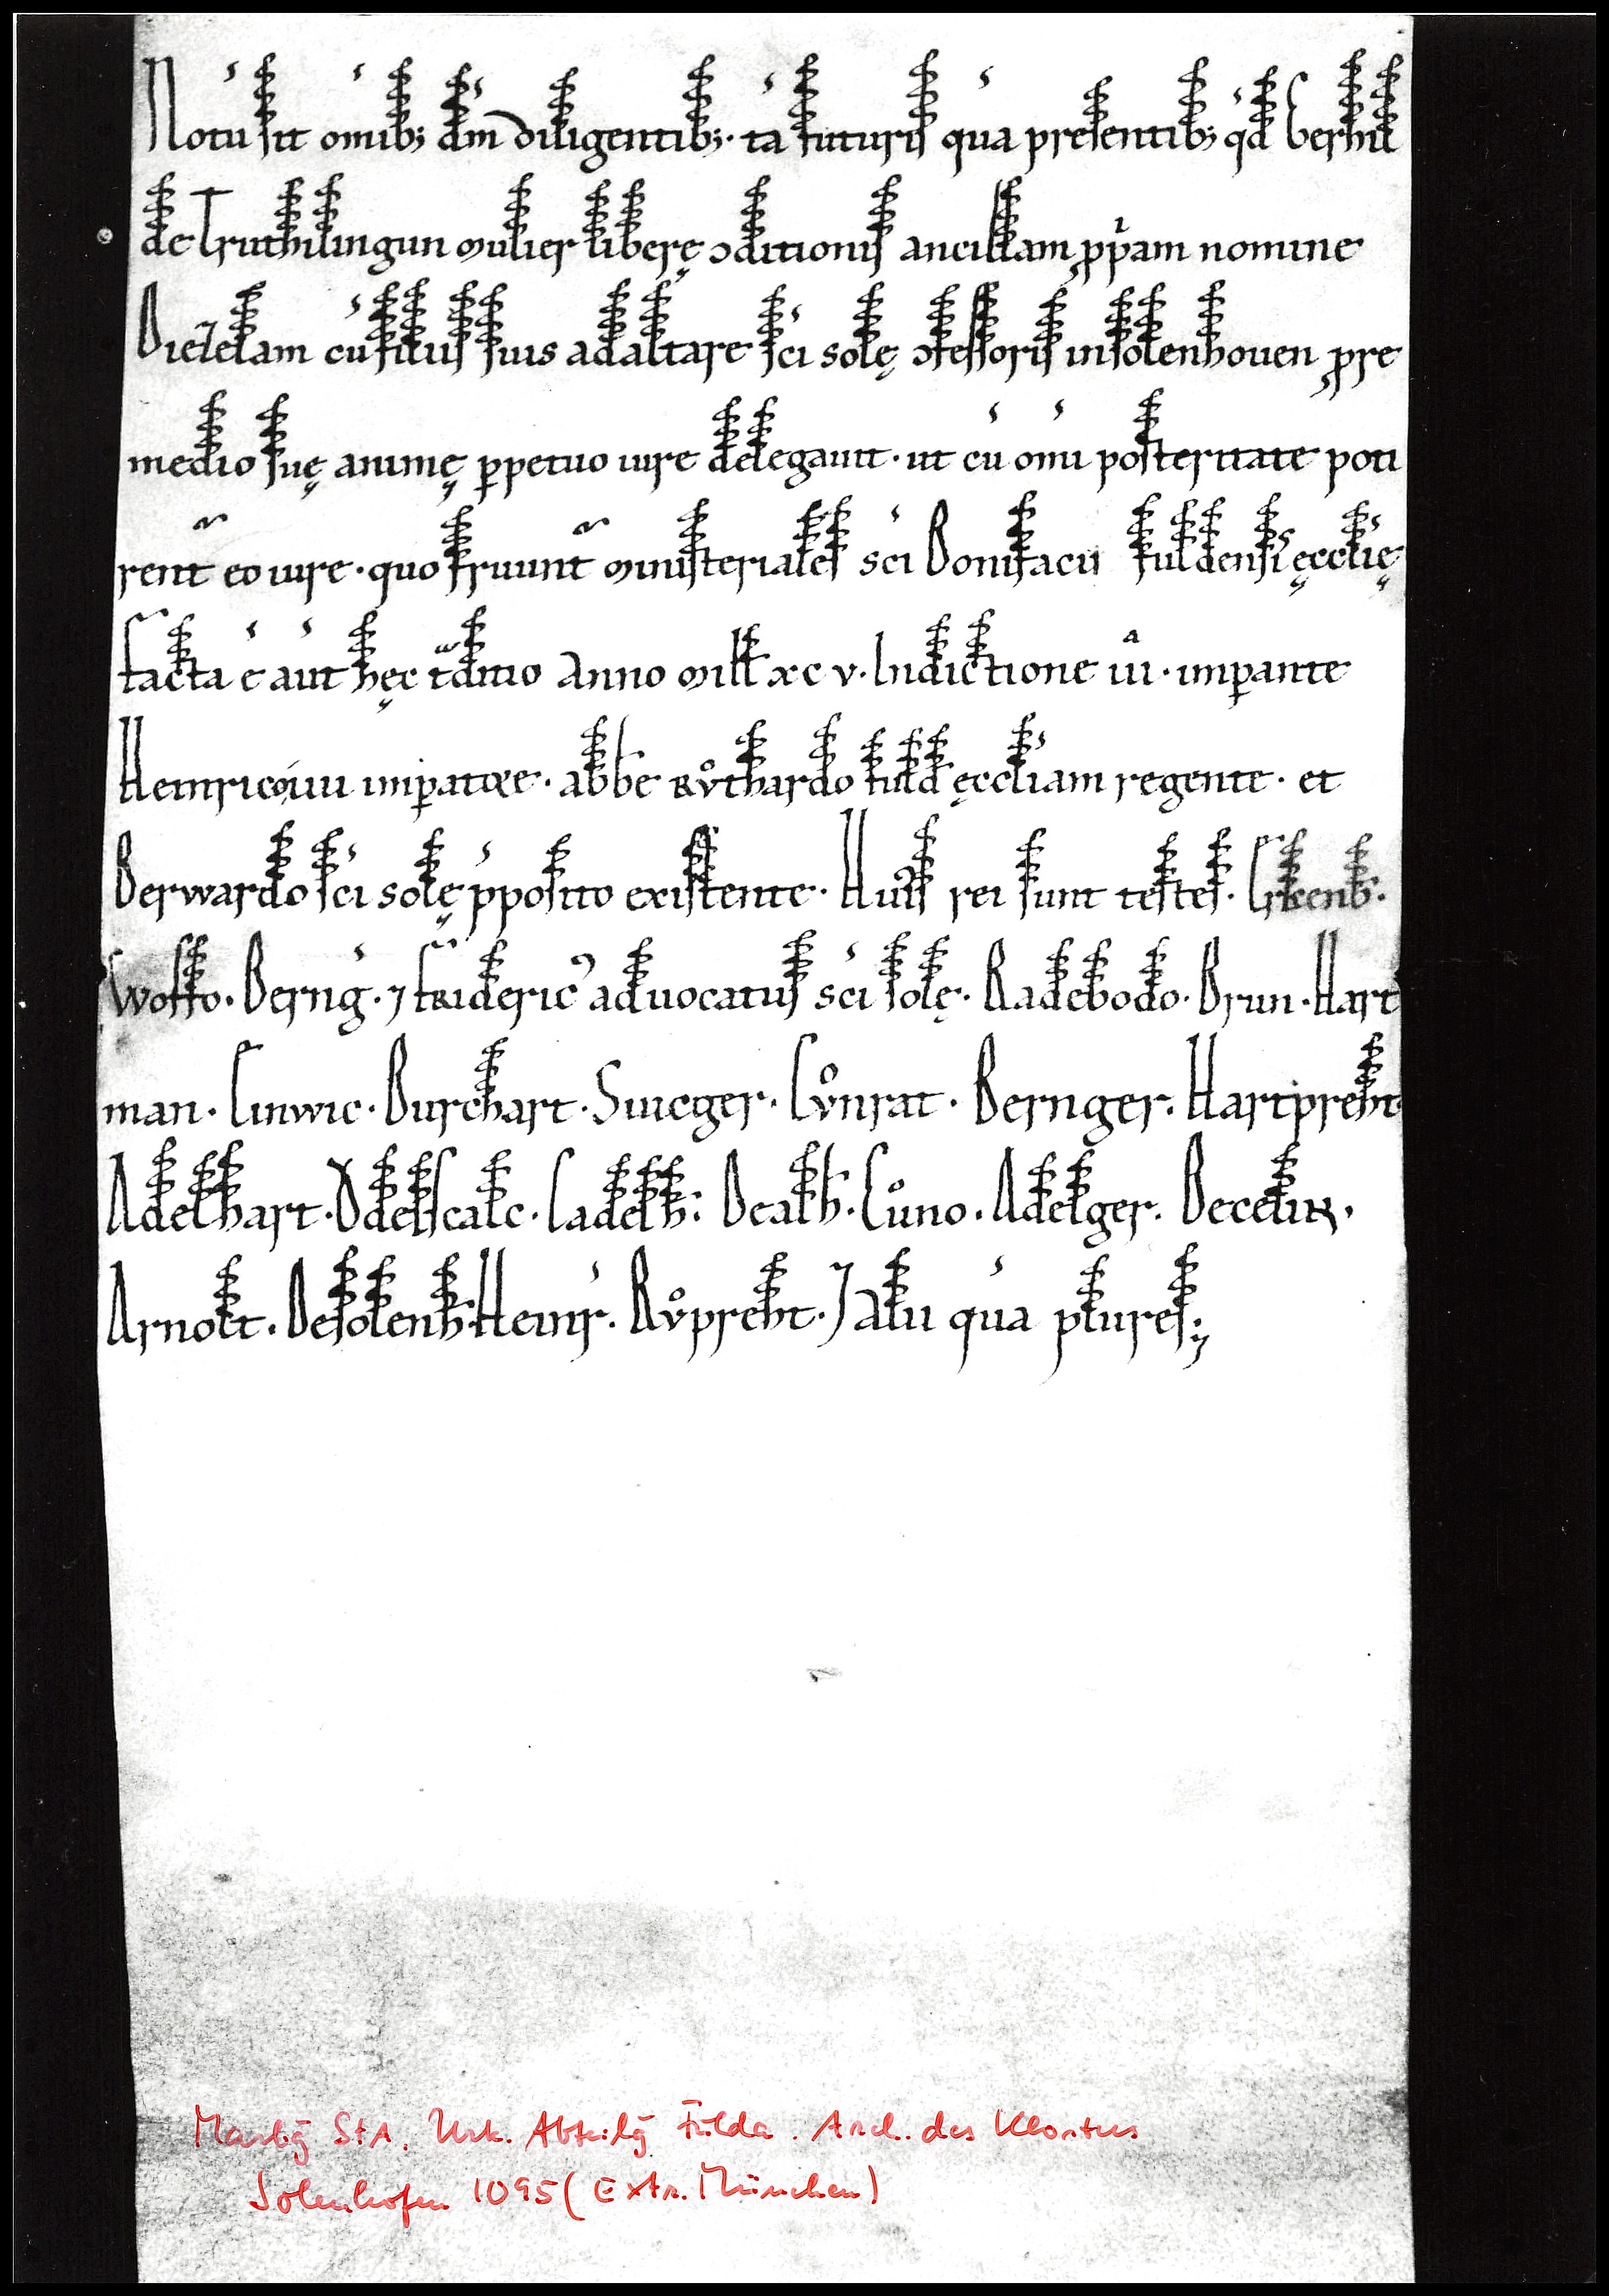 Notū sit omnib; dm̄ diligentib;. tā futuris quā presentib; qd̄ berhtt
de Truthilingun mulier liberę ɔditionis ancillam ppͥam nomine
Diezelam cū filiis suis ad altare sc̄i solę ɔfessoris in solenhouen pre
medio suę animę ꝑpetuo iure delegauit. ut cū om̄i posteritate poti
rent̄ eo iure. quo fruunt̄ ministeriales sc̄i Bonifacii fuldensis ęccl̄ię
facta ē aut̄ hęc t̄ditio Anno mill xc v. Indictione iii. imꝑante
Heinrico iiii imꝑatore. abb̄e Rvͦthardo fuld ęccl̄iam regente. et
Berwardo sc̄i solę p̄posito existente. Huiꝰ rei sunt testes. Erkenb.
Woffo. Bernḡ. ⁊ frideric̄ aduocatus sc̄i solę. Radebodo. Brun. Hart
man. Linwic. Burchart. Suicger. Cvͦnrat. Bernger. Hartpreht
Adelhart. Ǒdelscalc. Cadelh. Bealh̄. Cůno. Adelger. Becelin.
Arnolt. De solenh. Heinr̄. Rvͦpreht. ⁊ alii quā plures.;
Marbg StA. Urk. Abteilg Fulda. Arch. des Klosters
Solenhofen 1095 (Extr. München)